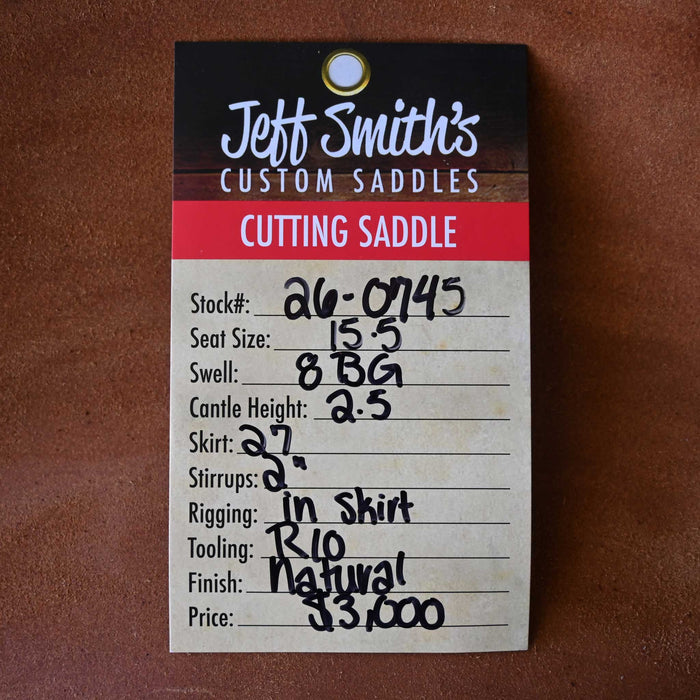 Jeff Smith's
CUSTOM SADDLES
CUTTING SADDLE
Stock#: 26-0745
Seat Size: 15.5
Swell: 8 BG
Cantle Height: 2.5
Skirt: 27
Stirrups: 2"
Rigging: in skirt
Tooling: Rio
Finish: Natural
Price: $3,000